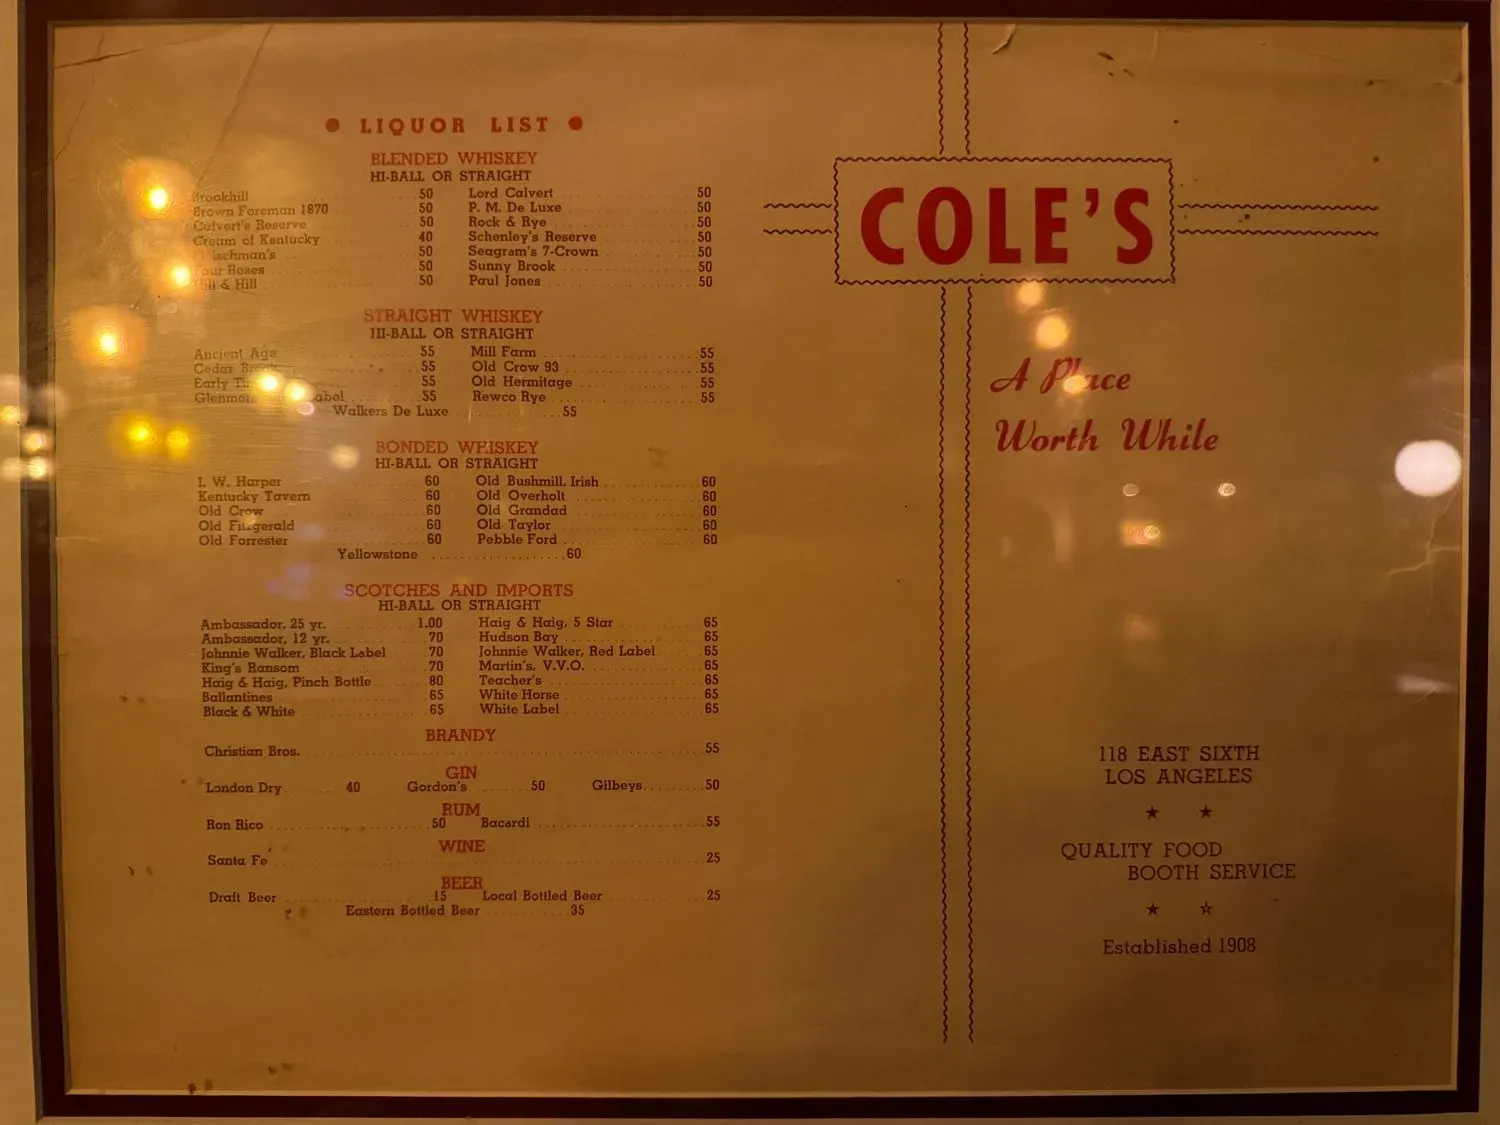 ● LIQUOR LIST ●
BLENDED WHISKEY
HI-BALL OR STRAIGHT
Brookhill 50 Lord Calvert 50
Brown Foreman 1870 50 P. M. De Luxe 50
Calvert's Reserve 50 Rock & Rye 50
Cream of Kentucky 40 Schenley's Reserve 50
Fleischman's 50 Seagram's 7-Crown 50
Four Roses 50 Sunny Brook 50
Hill & Hill 50 Paul Jones 50
STRAIGHT WHISKEY
HI-BALL OR STRAIGHT
Ancient Age 55 Mill Farm 55
Cedar 55 Old Crow 93 55
Early 55 Old Hermitage 55
55 Rewco Rye 55
Walkers De Luxe 55
BONDED WHISKEY
HI-BALL OR STRAIGHT
I. W. Harper 60 Old Bushmill, Irish 60
Kentucky Tavern 60 Old Overholt 60
Old Crow 60 Old Grandad 60
Old Fitzgerald 60 Old Taylor 60
Old Forrester 60 Pebble Ford 60
Yellowstone 60
SCOTCHES AND IMPORTS
HI-BALL OR STRAIGHT
Ambassador, 25 yr. 1.00 Haig & Haig, 5 Star 65
Ambassador, 12 yr. 70 Hudson Bay 65
Johnnie Walker, Black Label 70 Johnnie Walker, Red Label 65
King's Ransom 70 Martin's, V.V.O. 65
Haig & Haig, Pinch Bottle 80 Teacher's 65
Ballantines 65 White Horse 65
Black & White 65 White Label 65
BRANDY
Christian Bros. 55
GIN
London Dry 40 Gordon's 50 Gilbeys 50
RUM
Ron Rico 50 Bacardi 55
WINE
Santa Fe' 25
BEER
Draft Beer 15 Local Bottled Beer 25
Eastern Bottled Beer 35
COLE'S
A Place
Worth While
118 EAST SIXTH
LOS ANGELES
★ ★
QUALITY FOOD
BOOTH SERVICE
★ ☆
Established 1908